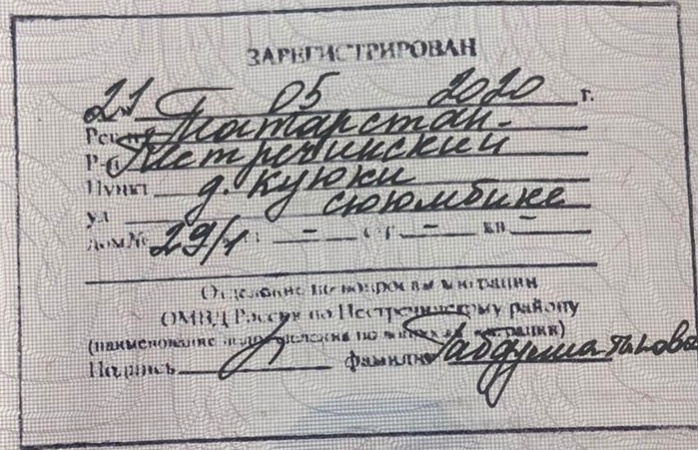 ЗАРЕГИСТРИРОВАН
21 05 2020 г.
Рег-н Татарстан
Р-н Пестречинский
Пункт д. Куюки
ул Сююмбике
дом № 29/1 – стр. – кв –
Отделение по вопросам миграции
ОМВД России по Пестречинскому району
(наименование подразделения по вопросам миграции)
Подпись фамилия